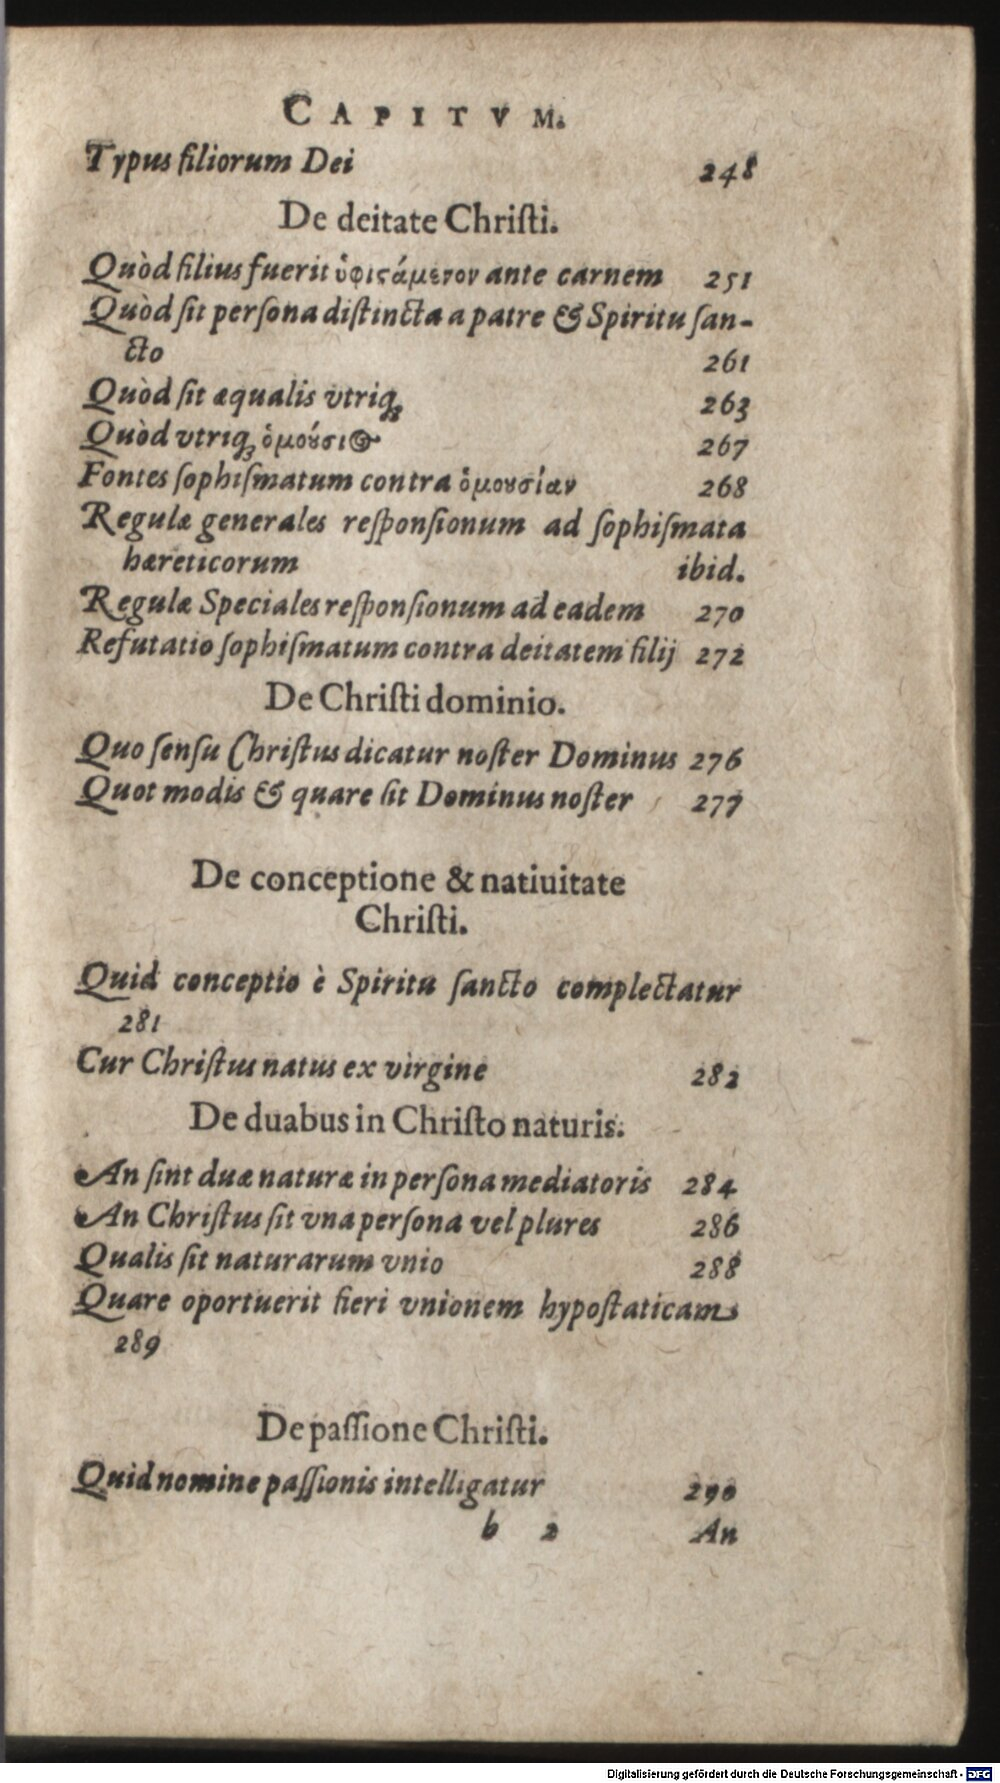 CAPITVM.
Typus filiorum Dei 248
De deitate Chriſti.
Quòd filius fuerit ὑφιςάμενον ante carnem 251
Quòd ſit perſona diſtincta a patre & Spiritu ſan-
cto 261
Quòd ſit æqualis vtriq; 263
Quòd vtriq; ὁμούσιος 267
Fontes ſophiſmatum contra ὁμουσίαν 268
Regulæ generales reſponſionum ad ſophiſmata
hæreticorum ibid.
Regulæ Speciales reſponſionum ad eadem 270
Refutatio ſophiſmatum contra deitatem filij 272
De Chriſti dominio.
Quo ſenſu Chriſtus dicatur noſter Dominus 276
Quot modis & quare ſit Dominus noſter 277
De conceptione & natiuitate
Chriſti.
Quid conceptio è Spiritu ſancto complectatur
281
Cur Chriſtus natus ex virgine 282
De duabus in Chriſto naturis.
An ſint duæ naturæ in perſona mediatoris 284
An Chriſtus ſit vna perſona vel plures 286
Qualis ſit naturarum vnio 288
Quare oportuerit fieri vnionem hypoſtaticam
289
De paſſione Chriſti.
Quid nomine paſſionis intelligatur 290
b 2 An
Digitalisierung gefördert durch die Deutsche Forschungsgemeinschaft - DFG